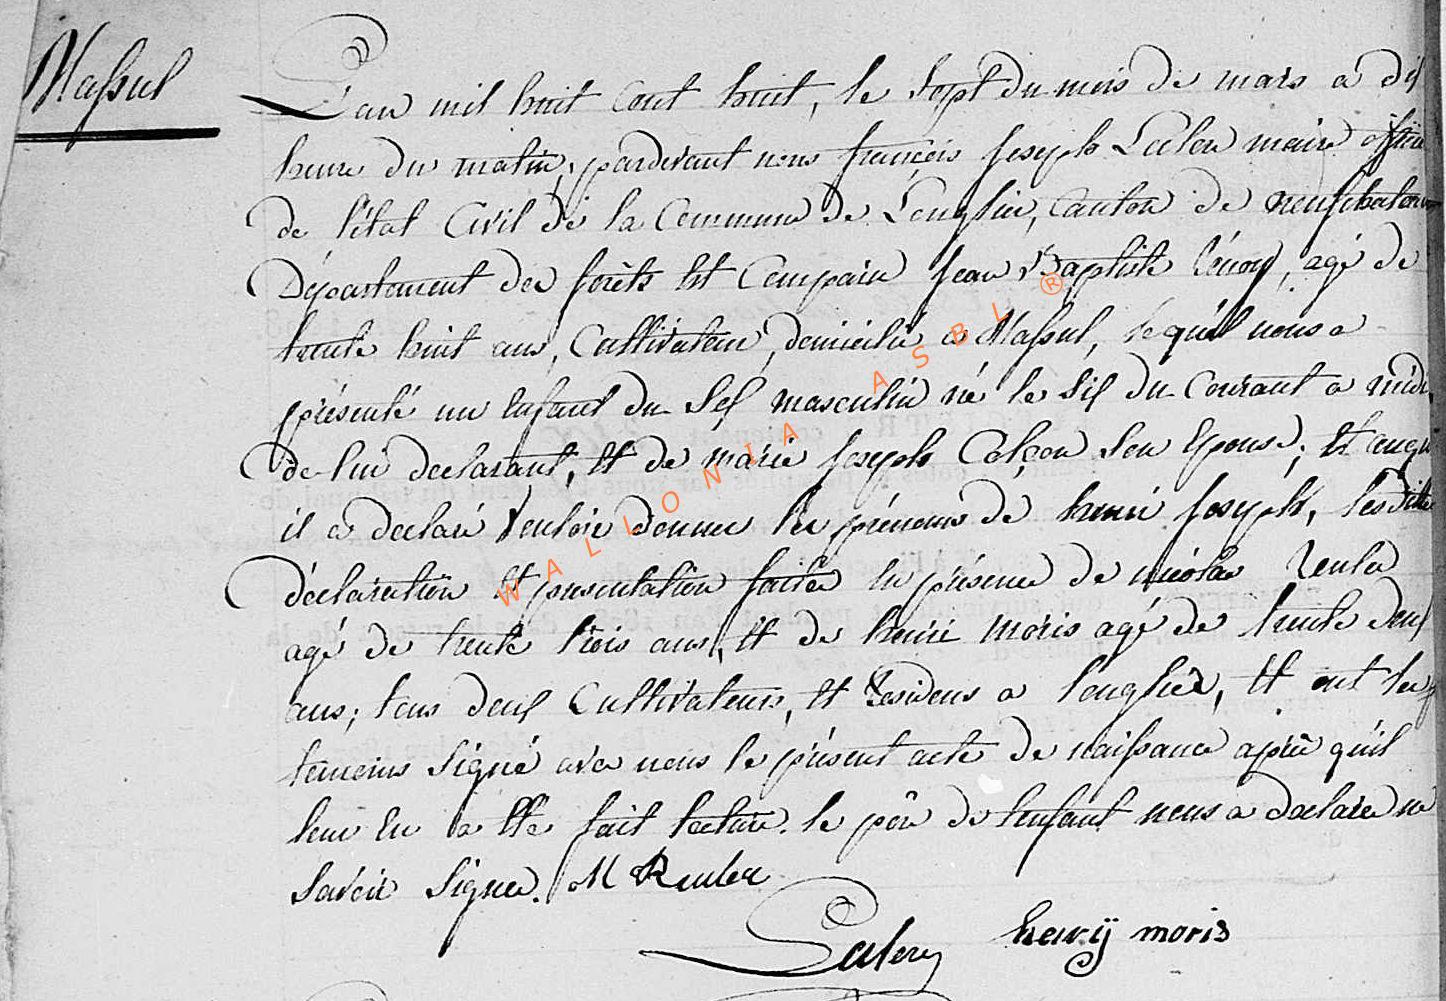 Massul
L'an mil huit cent huit, le sept du mois de mars a dix
heure du matin, pardevant nous françois joseph maire officier
de l'état Civil de la Commune de Longlier, canton de neufchateau
Département des forêts est Comparu jean Baptiste agé de
trente huit ans, Cultivateur, domicilié a Massul, lequel nous a
présenté un Enfant du Sex masculin né le six du Courant a midi,
de lui declarant, et de marie joseph son Epouse, et auquel
il a declaré vouloir donner les prénoms de henri joseph, lesdittes
déclaration et presentation faites en présence de nicolas
agé de trente trois ans, et de henri moris agé de trente deux
ans, tous deux Cultivateurs, et residens a longlier, et ont les
temoins signé avec nous le présent acte de naissance après qu'il
leur en a été fait lecture. le père de l'enfant nous a declaré ne
savoir signer. N Reuler
henrÿ moris
WALLONIA ASBL ®